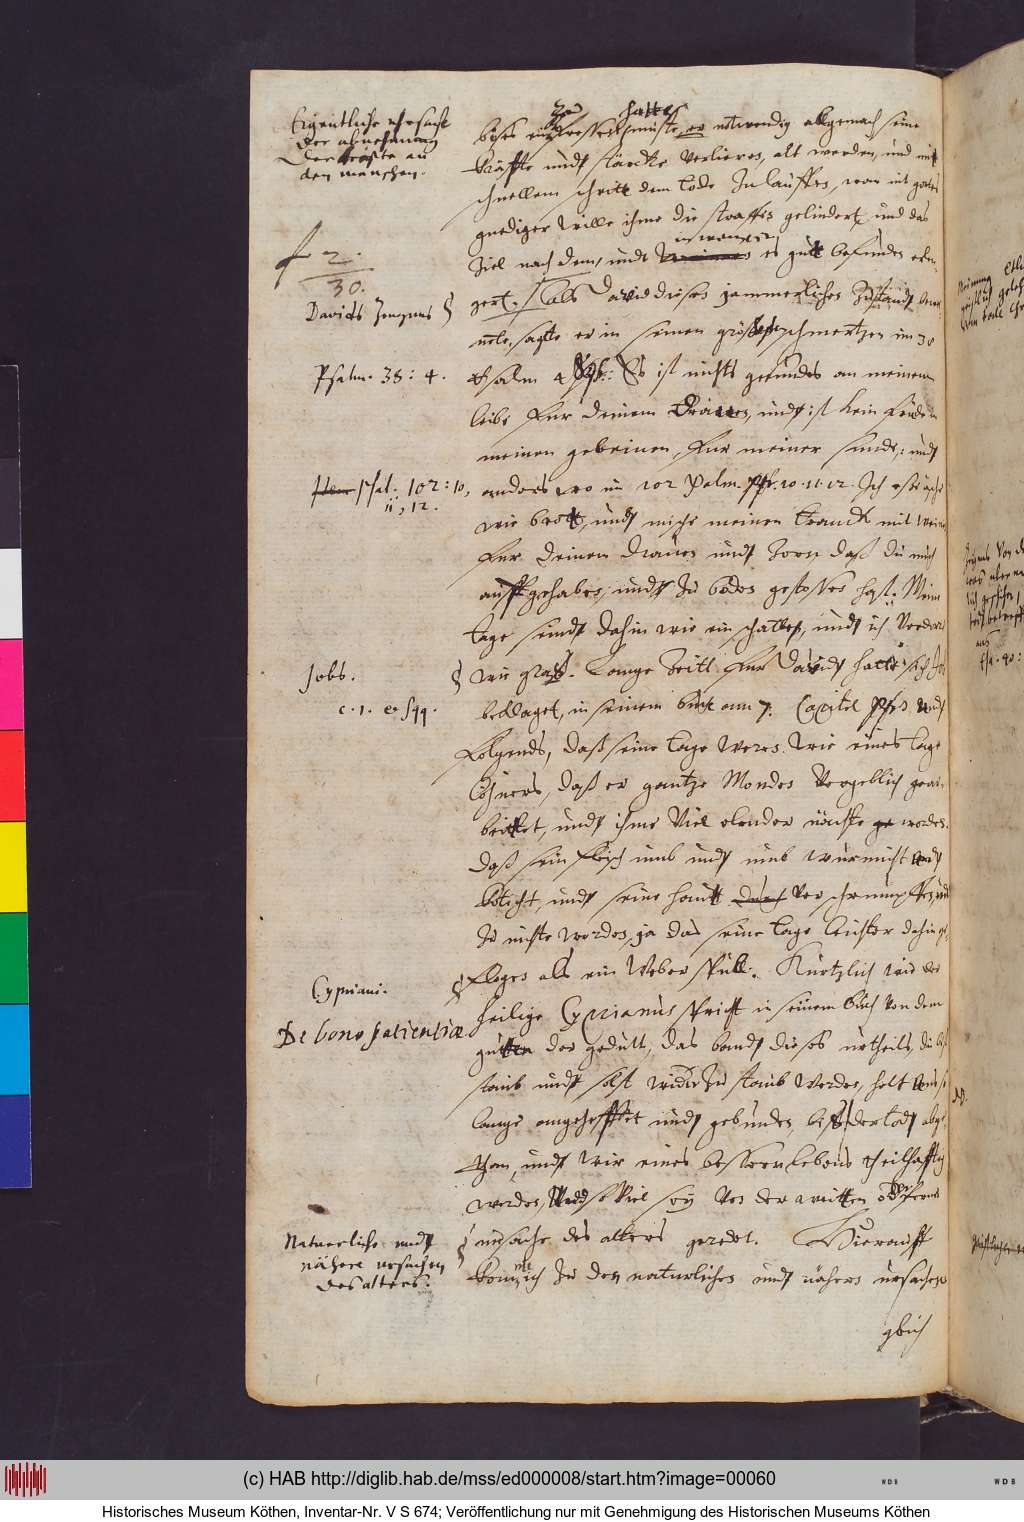 Eigentliche ursache
der abnehmung
der kräfte an
den menschen.
2.
30.
Davids Zeugnus
Psalm. 38: 4.
Psal. 102: 10,
11, 12.
Jobs.
c. 7. et sqq.
Cypriani.
De bono patientiæ
Naturliche undt
nähere ursachen
des alters.
hatte
muste er notwendig allgemach seine
kräffte undt stärcke verlieren, alt werden, und mit
schnellem schritt dem tode zu lauffen, wan nit gottes
gnediger wille ihme die straffen gelindert, und das
ziel nach dem, undt es gutt befunden
gert. Als David diesen jammerlichen zustandt
sagte er in seinen grösten schmertzen im 38
Psalm 4 Es ist nichts gesundes an meinem
leibe fur deinem drauen, undt ist kein friede in
meinen gebeinen, fur meiner sunde, undt
anders wo im 102 Psalm. 10. 11. 12. Ich esse asche
wie brott, undt mische meinen tranck mit weinen
fur deinem drauen undt zorn daß du mich
auffgehaben, undt zu boden gestossen hast. Meine
tage seindt dahin wie ein schatten, undt ich verdorre
wie graß. Lange zeitt fur David hatte sich Job
beklaget, in seinem buch am 7. Capitel undt
folgends, daß seine tage weren wie eines tage
löhners, daß er gantze Monden vergeblich gear-
beittet, undt ihme viel elender nächte worden.
daß sein fleisch umb undt umb wurmicht undt
koticht, undt seine hautt verschrumpffen, undt
zu nichte worden, ja das seine tage leichter dahin ge-
flogen als ein Weber spull. Kurtzlich wie der
heilige Cyprianus spricht in seinem buch von dem
gutten der gedult, das bandt dieses urtheils, du bist
staub undt solst wider zu staub werden, helt uns so
lange angehefftet undt gebunden, biß der todt abge-
than, undt wir eines bessern lebens theilhafftig
werden, Undt so viel sey von der weitten
ursache des alters geredet. Hierauff
komme ich zu den naturlichen undt nähern ursachen
(c) HAB http://diglib.hab.de/mss/ed000008/start.htm?image=00060
WDB
WDB
Historisches Museum Köthen, Inventar-Nr. V S 674; Veröffentlichung nur mit Genehmigung des Historischen Museums Köthen